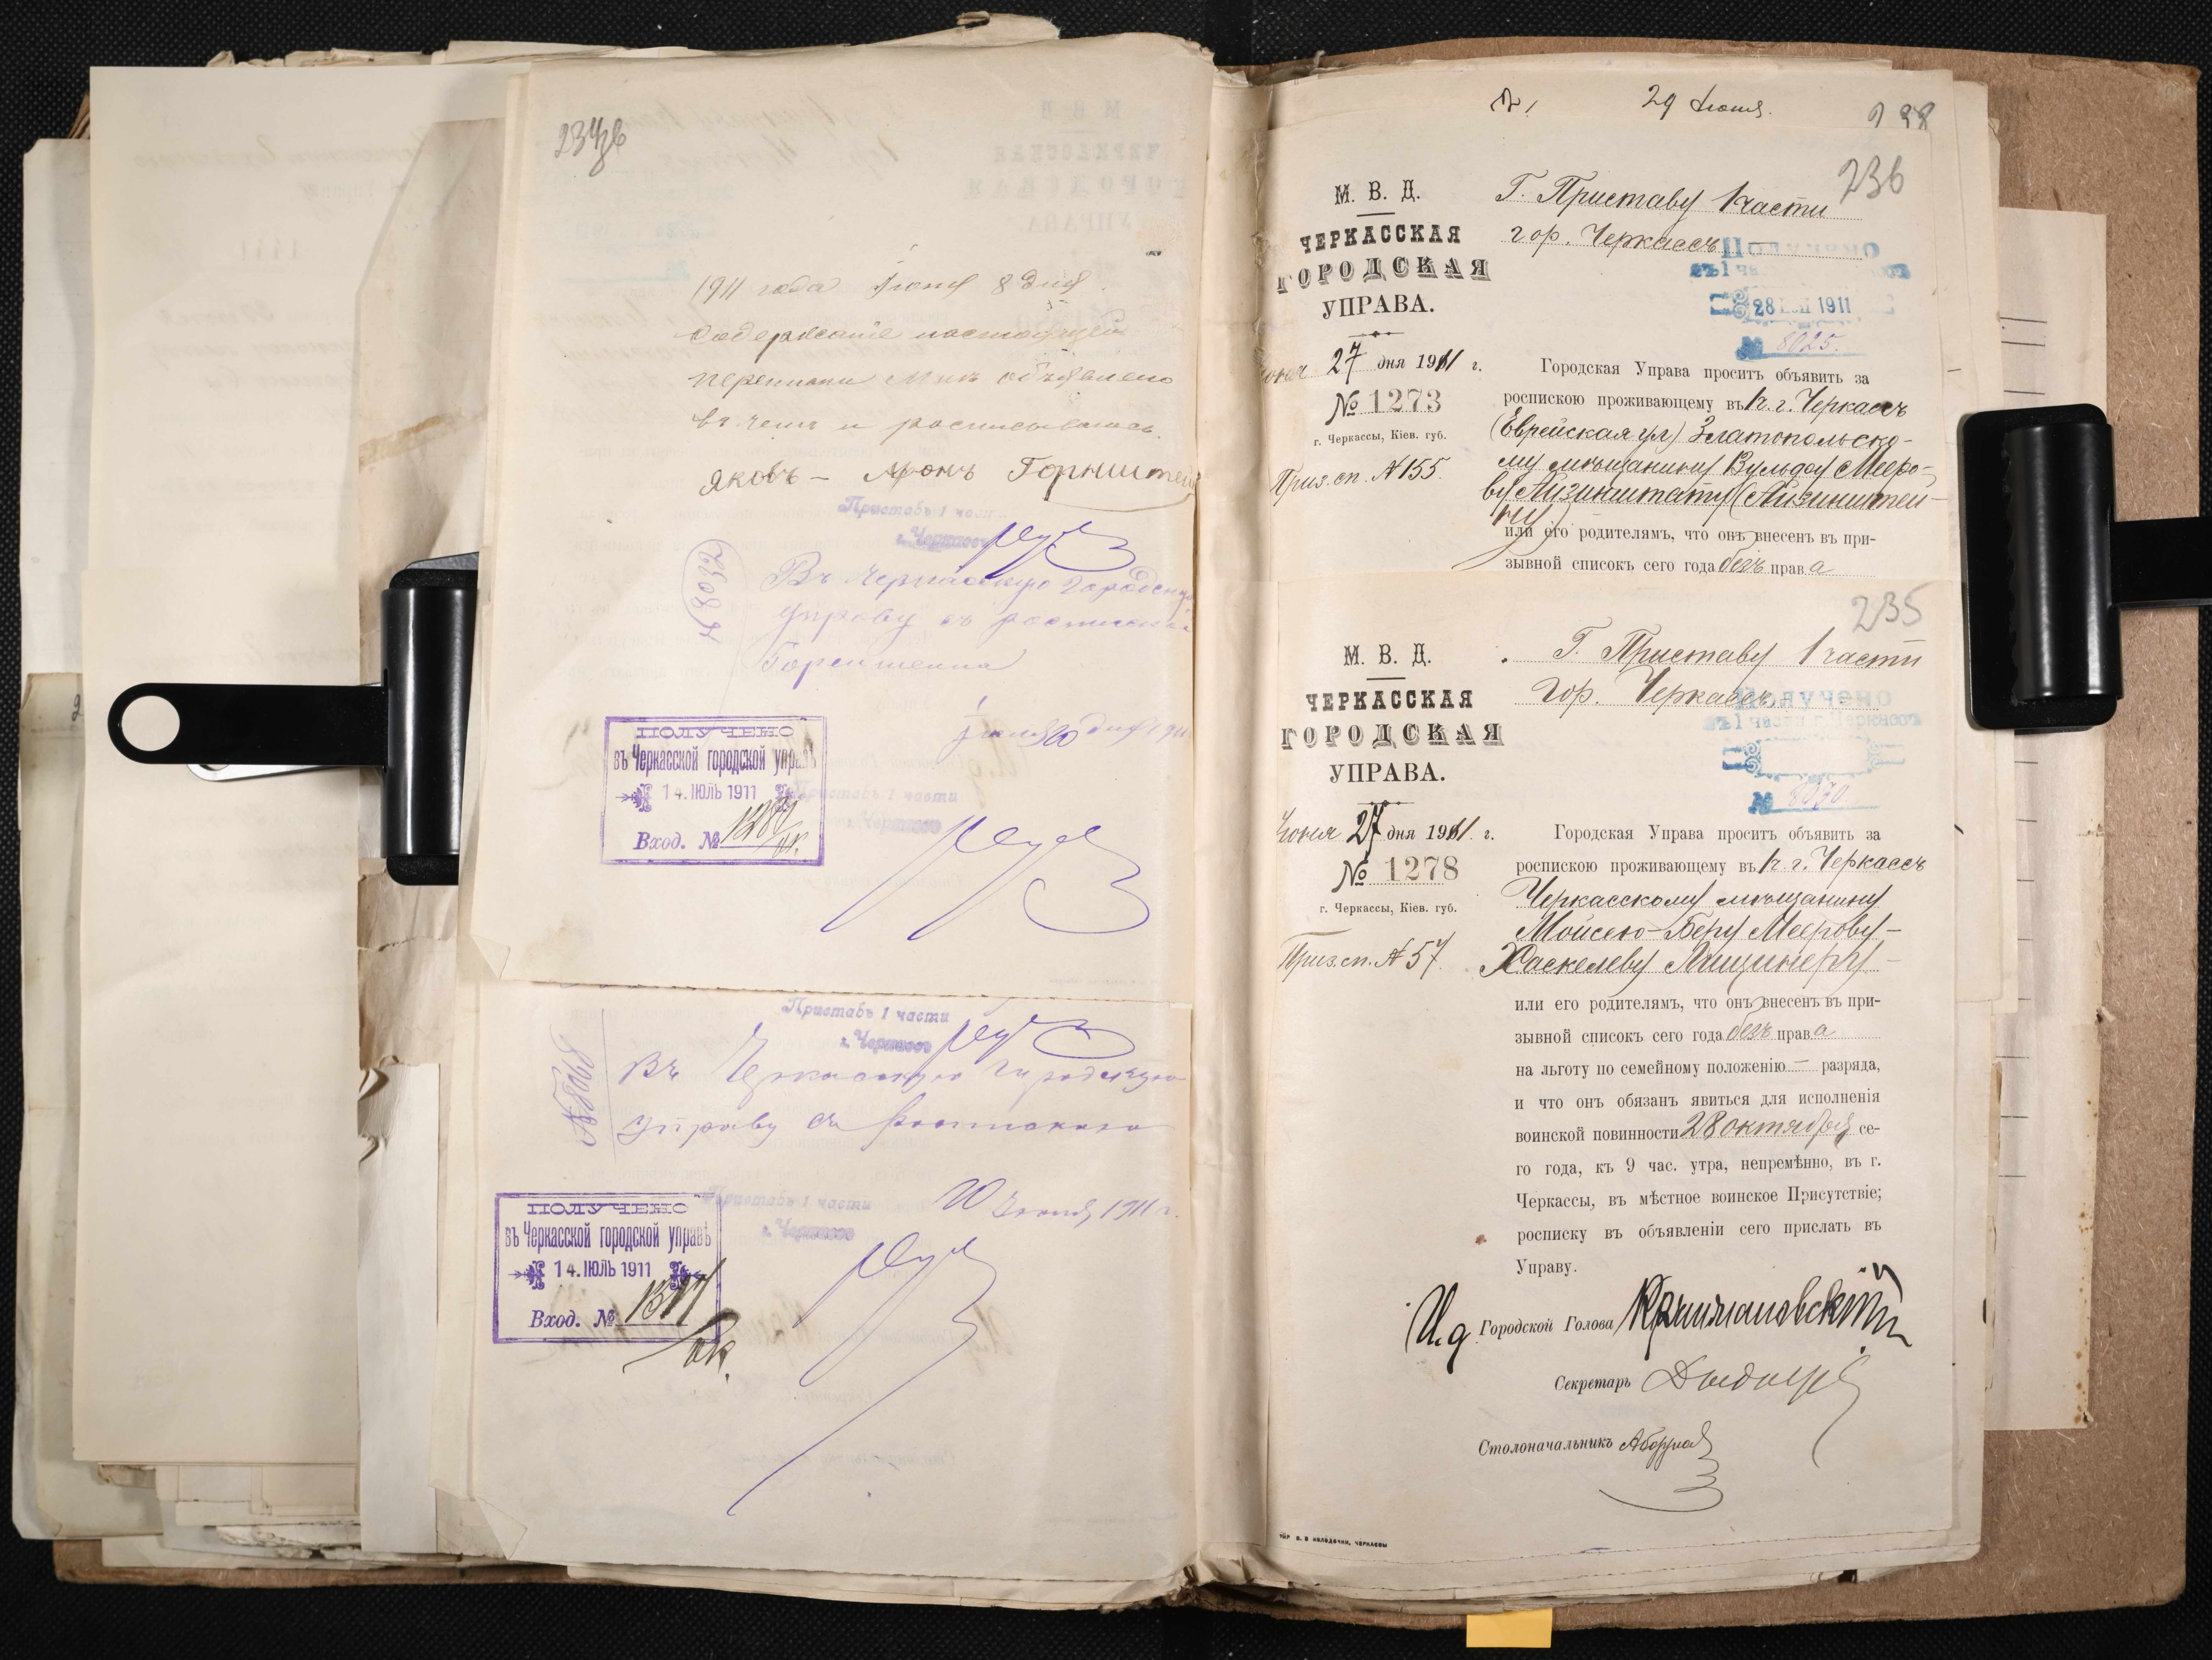 234об
1911 года Іюля 8 дня.
Содержаніе настоящей
переписки мнѣ объявлено
въ чемъ и росписываюсь.
Яковъ – Аронъ Горнштейн
Приставъ 1 части
г. Черкассъ
№ 8032
Въ Черкасскую Городскую
Управу съ росписк
Горнштейна
Іюля 10 дня 1911
ПОЛУЧЕНО
въ Черкасской городской управѣ
14. ІЮЛЬ 1911
Вход. №
Приставъ 1 части
г. Черкассъ
Приставъ 1 части
г. Черкассъ
Въ Черкасскую Городскую
Управу съ роспискою
10 Іюля 1911 г.
Приставъ 1 части
г. Черкассъ
ПОЛУЧЕНО
въ Черкасской городской управѣ
14. ІЮЛЬ 1911
Вход. №
29 Іюня.
236
М. В. Д.
ЧЕРКАССКАЯ
ГОРОДСКАЯ
УПРАВА.
Іюня 27 дня 1911 г.
№ 1273
г. Черкассы, Кіев. губ.
Приз. сп. № 155.
Г. Приставу 1 части
гор. Черкассъ
Получено
28 1911
№ 8025.
Городская Управа проситъ объявить за
роспискою проживающему въ 1ч. г. Черкассъ
(Еврейская ул) Златопольско-
му мѣщанину Вульфу Мееро-
ву Айзинштату (Айзинштей-
ну)
или его родителямъ, что онъ внесенъ въ при-
зывной списокъ сего года безъ права
235
М. В. Д.
ЧЕРКАССКАЯ
ГОРОДСКАЯ
УПРАВА.
Іюня 27 дня 1911 г.
№ 1278
г. Черкассы, Кіев. губ.
Приз. сп. № 57
Г. Приставу 1 части
гор. Черкассъ
Получено
въ 1 части г. Черкассъ
№ 8030.
Городская Управа проситъ объявить за
роспискою проживающему въ 1ч. г. Черкассъ
Черкасскому мѣщанину
Мойсею-Беру Меерову-
Хаскелеву Лищинеру
или его родителямъ, что онъ внесенъ въ при-
зывной списокъ сего года безъ права
на льготу по семейному положенію — разряда,
и что онъ обязанъ явиться для исполненія
воинской повинности 28 октября се-
го года, къ 9 час. утра, непремѣнно, въ г.
Черкассы, въ мѣстное воинское Присутствіе;
росписку въ объявленіи сего прислать въ
Управу.
И.д. Городской Голова
Секретарь
Столоначальникъ